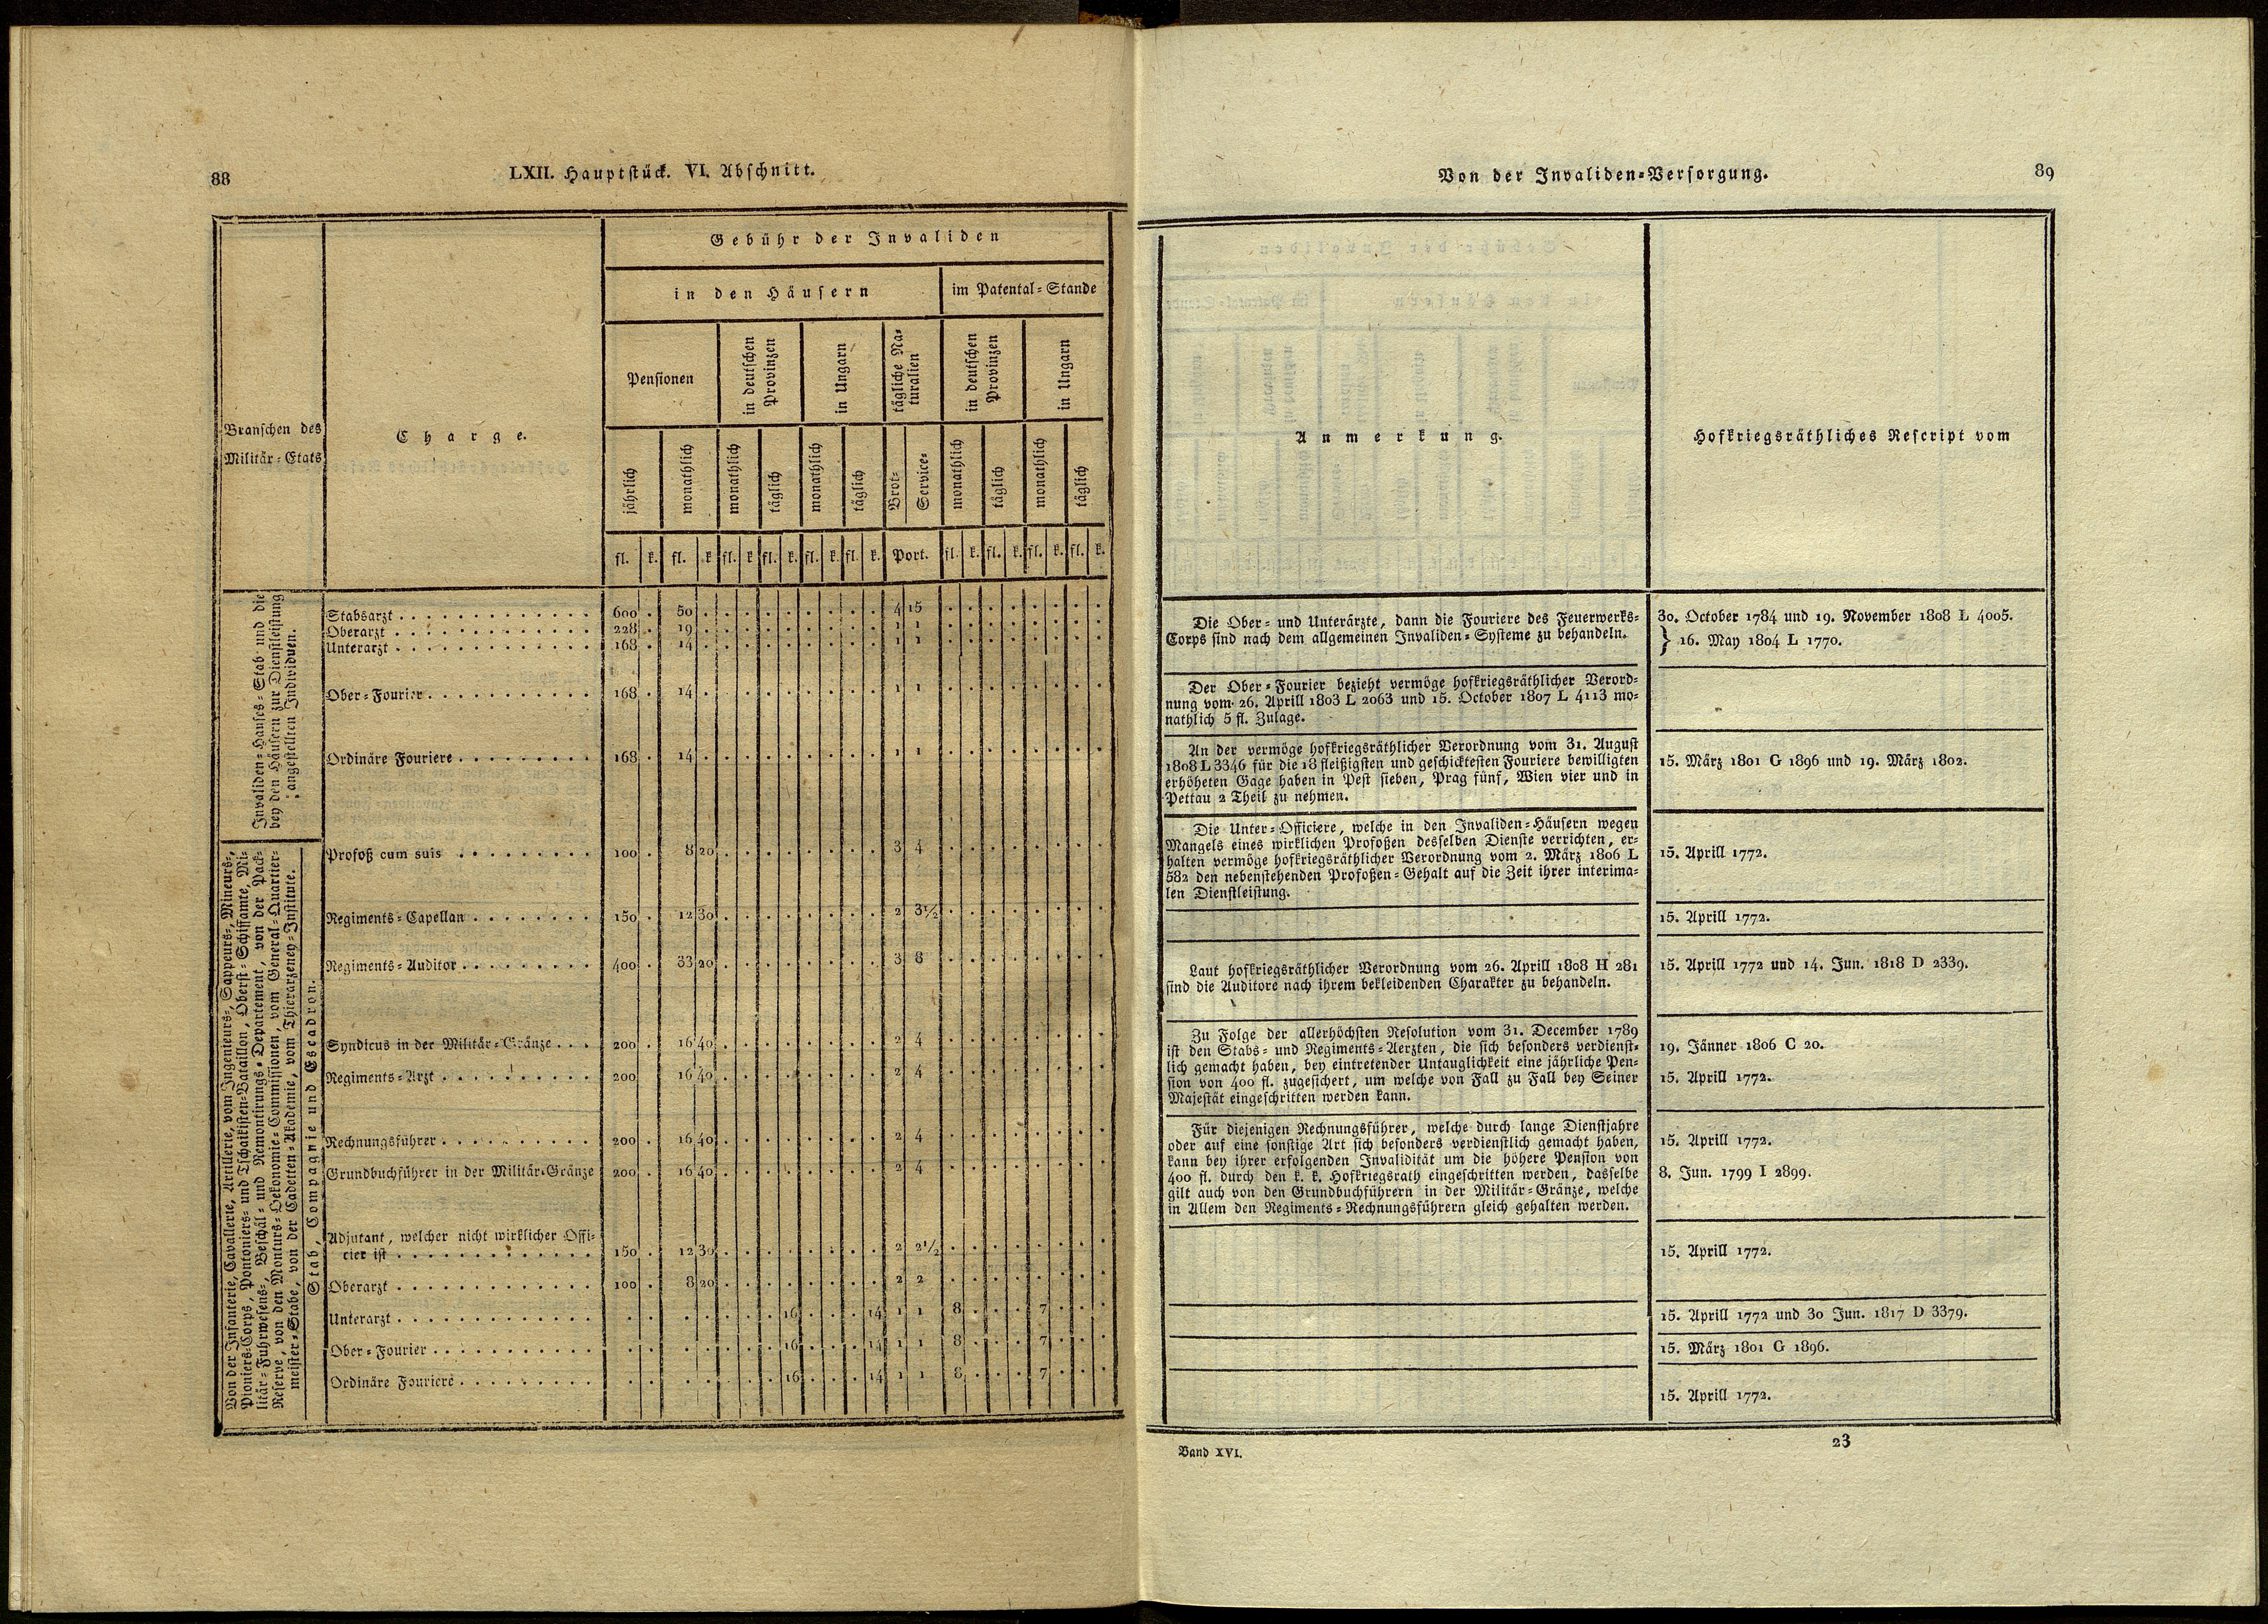 88
LXII. Hauptstück. VI. Abschnitt.
Branschen des
Militär-Etats
Charge.
Gebühr der Invaliden
in den Häusern
im Patental-Stande
Pensionen
in deutschen
Provinzen
in Ungarn
tägliche Na-
turalien
in deutschen
Provinzen
in Ungarn
jährlich
monathlich
monathlich
täglich
monathlich
täglich
Brot-
Service-
monathlich
täglich
monathlich
täglich
fl. k. fl. k fl. k fl. k. fl. k. fl. k. Port. fl. k. fl. k. fl. k. fl. k.
Invaliden-Hauses-Stab und die
bey den Häusern zur Dienstleistung
angestellten Individuen.
Stabsarzt . . . 600 . 50 . 4 15
Oberarzt . . . 228 . 19 . 1 1
Unterarzt . . . 168 . 14 . 1 1
Ober-Fourier . . . 168 . 14 . 1 1
Ordinäre Fouriere . . . 168 . 14 . 1 1
Von der Infanterie, Cavallerie, Artillerie, vom Ingenieurs-, Sappeurs-, Mineurs-,
Pioniers-Corps, Pontoniers- und Tschaikisten-Bataillon, Oberst-Schiffamte, Mi-
litär-Fuhrwesens-, Beschäl- und Remontirungs-Departement, von der Pack-
Reserve, von den Monturs-Oekonomie-Commissionen, vom General-Quartier-
meister-Stabe, von der Cadetten-Akademie, vom Thierarzeney-Institute.
Stab, Compagnie und Escadron.
Profoß cum suis . . . 100 . 8 20 3 4
Regiments-Capellan . . . 150 . 12 30 2 3½
Regiments-Auditor . . . 400 . 33 20 3 8
Syndicus in der Militär-Gränze . . . 200 . 16 40 2 4
Regiments-Arzt . . . 200 . 16 40 2 4
Rechnungsführer . . . 200 . 16 40 2 4
Grundbuchführer in der Militär-Gränze 200 . 16 40 2 4
Adjutant, welcher nicht wirklicher Offi-
cier ist . . . 150 . 12 30 2 2½
Oberarzt . . . 100 . 8 20 2 2
Unterarzt . . . 16 . 14 1 1 8 . 7
Ober-Fourier . . . 16 . 14 1 1 8 . 7
Ordinäre Fouriere . . . 16 . 14 1 1 8 . 7
Von der Invaliden-Versorgung.
89
Anmerkung.
Hofkriegsräthliches Rescript vom
Die Ober- und Unterärzte, dann die Fouriere des Feuerwerks-
Corps sind nach dem allgemeinen Invaliden-Systeme zu behandeln.
30. October 1784 und 19. November 1808 L 4005.
} 16. May 1804 L 1770.
Der Ober-Fourier bezieht vermöge hofkriegsräthlicher Verord-
nung vom 26. Aprill 1803 L 2063 und 15. October 1807 L 4113 mo-
nathlich 5 fl. Zulage.
An der vermöge hofkriegsräthlicher Verordnung vom 31. August
1808 L 3346 für die 18 fleißigsten und geschicktesten Fouriere bewilligten
erhöheten Gage haben in Pest sieben, Prag fünf, Wien vier und in
Pettau 2 Theil zu nehmen.
15. März 1801 G 1896 und 19. März 1802.
Die Unter-Officiere, welche in den Invaliden-Häusern wegen
Mangels eines wirklichen Profoßen desselben Dienste verrichten, er-
halten vermöge hofkriegsräthlicher Verordnung vom 2. März 1806 L
582 den nebenstehenden Profoßen-Gehalt auf die Zeit ihrer interima-
len Dienstleistung.
15. Aprill 1772.
15. Aprill 1772.
Laut hofkriegsräthlicher Verordnung vom 26. Aprill 1808 H 281
sind die Auditore nach ihrem bekleidenden Charakter zu behandeln.
15. Aprill 1772 und 14. Jun. 1818 D 2339.
Zu Folge der allerhöchsten Resolution vom 31. December 1789
ist den Stabs- und Regiments-Aerzten, die sich besonders verdienst-
lich gemacht haben, bey eintretender Untauglichkeit eine jährliche Pen-
sion von 400 fl. zugesichert, um welche von Fall zu Fall bey Seiner
Majestät eingeschritten werden kann.
19. Jänner 1806 C 20.
15. Aprill 1772.
Für diejenigen Rechnungsführer, welche durch lange Dienstjahre
oder auf eine sonstige Art sich besonders verdienstlich gemacht haben,
kann bey ihrer erfolgenden Invalidität um die höhere Pension von
400 fl. durch den k. k. Hofkriegsrath eingeschritten werden, dasselbe
gilt auch von den Grundbuchführern in der Militär-Gränze, welche
in Allem den Regiments-Rechnungsführern gleich gehalten werden.
15. Aprill 1772.
8. Jun. 1799 I 2899.
15. Aprill 1772.
15. Aprill 1772 und 30 Jun. 1817 D 3379.
15. März 1801 G 1896.
15. Aprill 1772.
Band XVI.
23